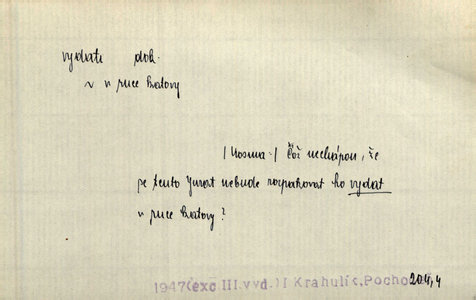 vydati dok.
~ v ruce katovy
/Kosma:/ Což nechápou, že
se tento Jurost nebude rozpakovat ho vydat
v ruce katovy?
1947(exc III.vyd.)I Krahulík, Pocho 204,4